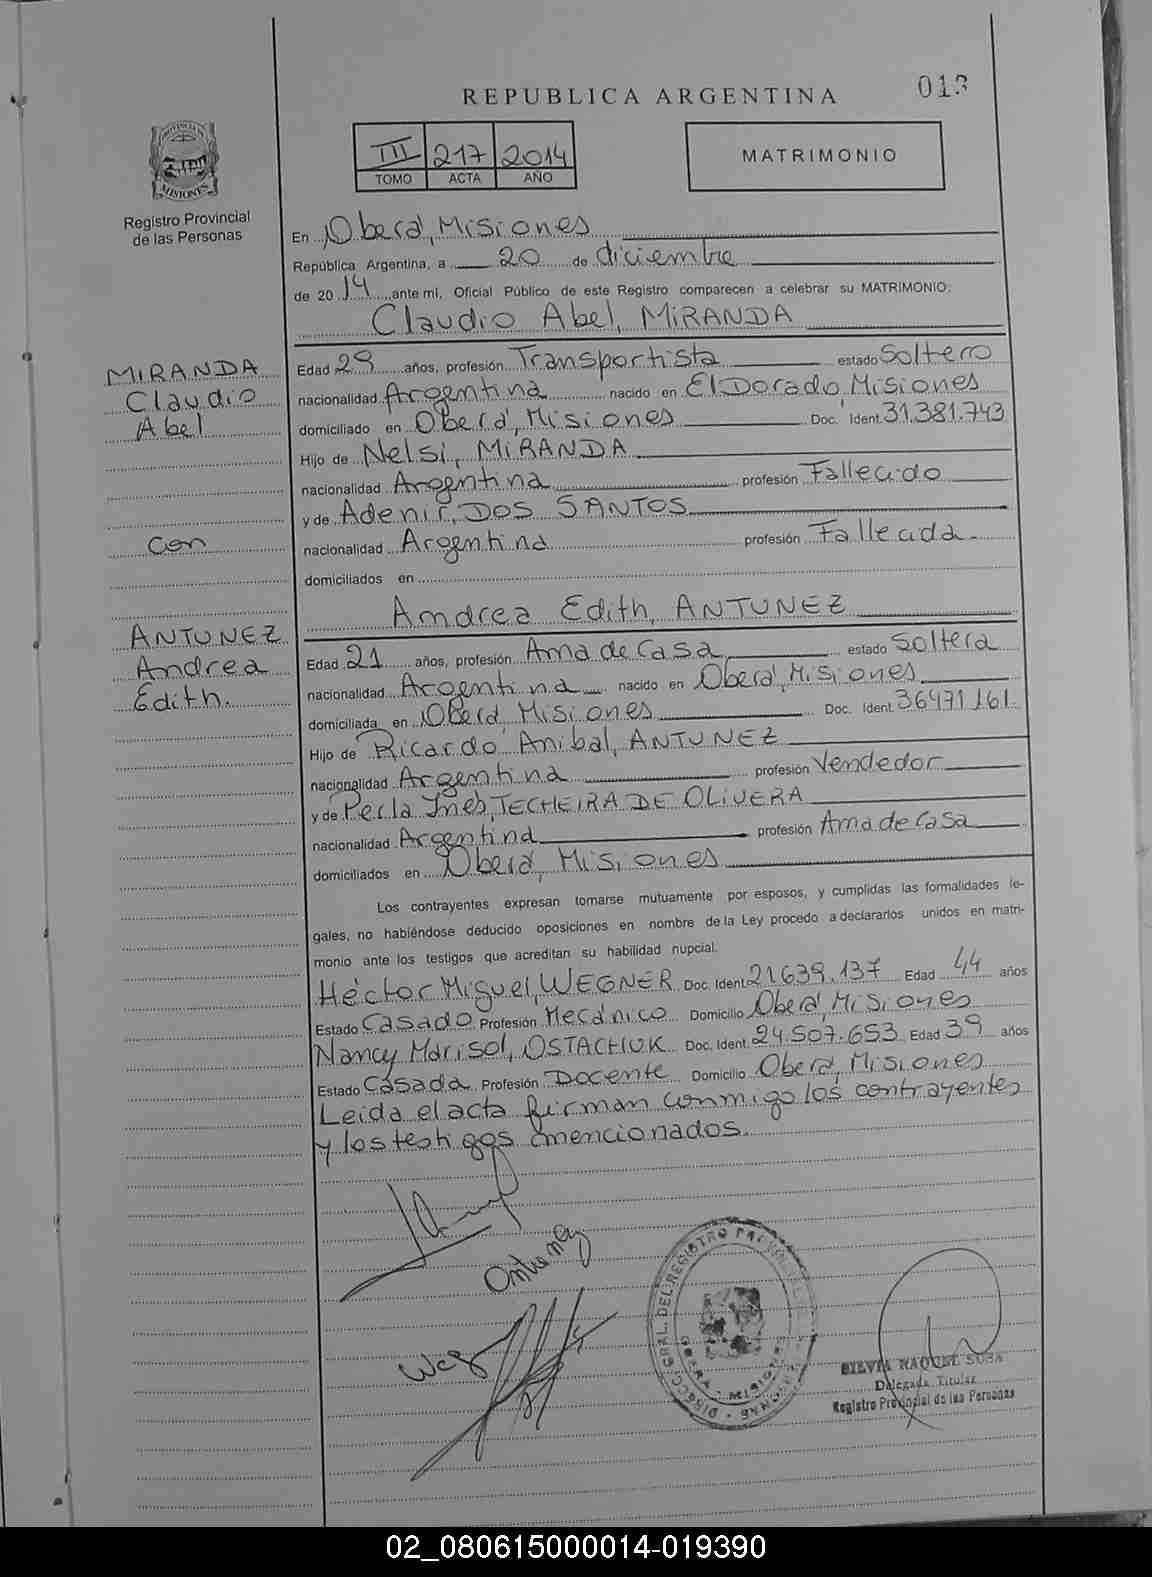 013
REPUBLICA ARGENTINA
III 217 2014
TOMO ACTA AÑO
MATRIMONIO
PROVINCIA DE
MISIONES
Registro Provincial
de las Personas
En Oberá, Misiones
República Argentina, a 20 de diciembre
de 2014, ante mi, Oficial Público de este Registro comparecen a celebrar su MATRIMONIO:
Claudio Abel, MIRANDA
MIRANDA
Claudio
Abel
Edad 29 años, profesión Transportista estado Soltero
nacionalidad Argentina nacido en ElDorado, Misiones
domiciliado en Oberá, Misiones Doc. Ident. 31.381.743
Hijo de Nelsi, MIRANDA
nacionalidad Argentina profesión Fallecido
y de Adenir, DOS SANTOS
con
nacionalidad Argentina profesión Fallecida
domiciliados en
Andrea Edith, ANTUNEZ
ANTUNEZ
Andrea
Edith.
Edad 21 años, profesión Ama de Casa estado Soltera
nacionalidad Argentina nacido en Oberá, Misiones
domiciliada en Oberá, Misiones Doc. Ident. 36471161.
Hijo de Ricardo Anibal, ANTUNEZ
nacionalidad Argentina profesión Vendedor
y de Perla Ines, TECHEIRA DE OLIVERA
nacionalidad Argentina profesión Ama de Casa
domiciliados en Oberá, Misiones
Los contrayentes expresan tomarse mutuamente por esposos, y cumplidas las formalidades le-
gales, no habiéndose deducido oposiciones en nombre de la Ley procedo a declararlos unidos en matri-
monio ante los testigos que acreditan su habilidad nupcial.
Héctor Miguel, WEGNER Doc. Ident. 21.639.137 Edad 44 años
Estado Casado Profesión Mecánico Domicilio Oberá, Misiones
Nancy Marisol, OSTACHUK Doc. Ident. 24.507.653 Edad 39 años
Estado Casada Profesión Docente Domicilio Oberá, Misiones
Leida el acta firman conmigo los contrayentes
y los testigos mencionados.
Antunez
DIRECC. GRAL. DEL REGISTRO
OBERA - MISIONES
SILVIA RAQUEL
Delegada Titular
Registro Provincial de las Personas
02_080615000014-019390